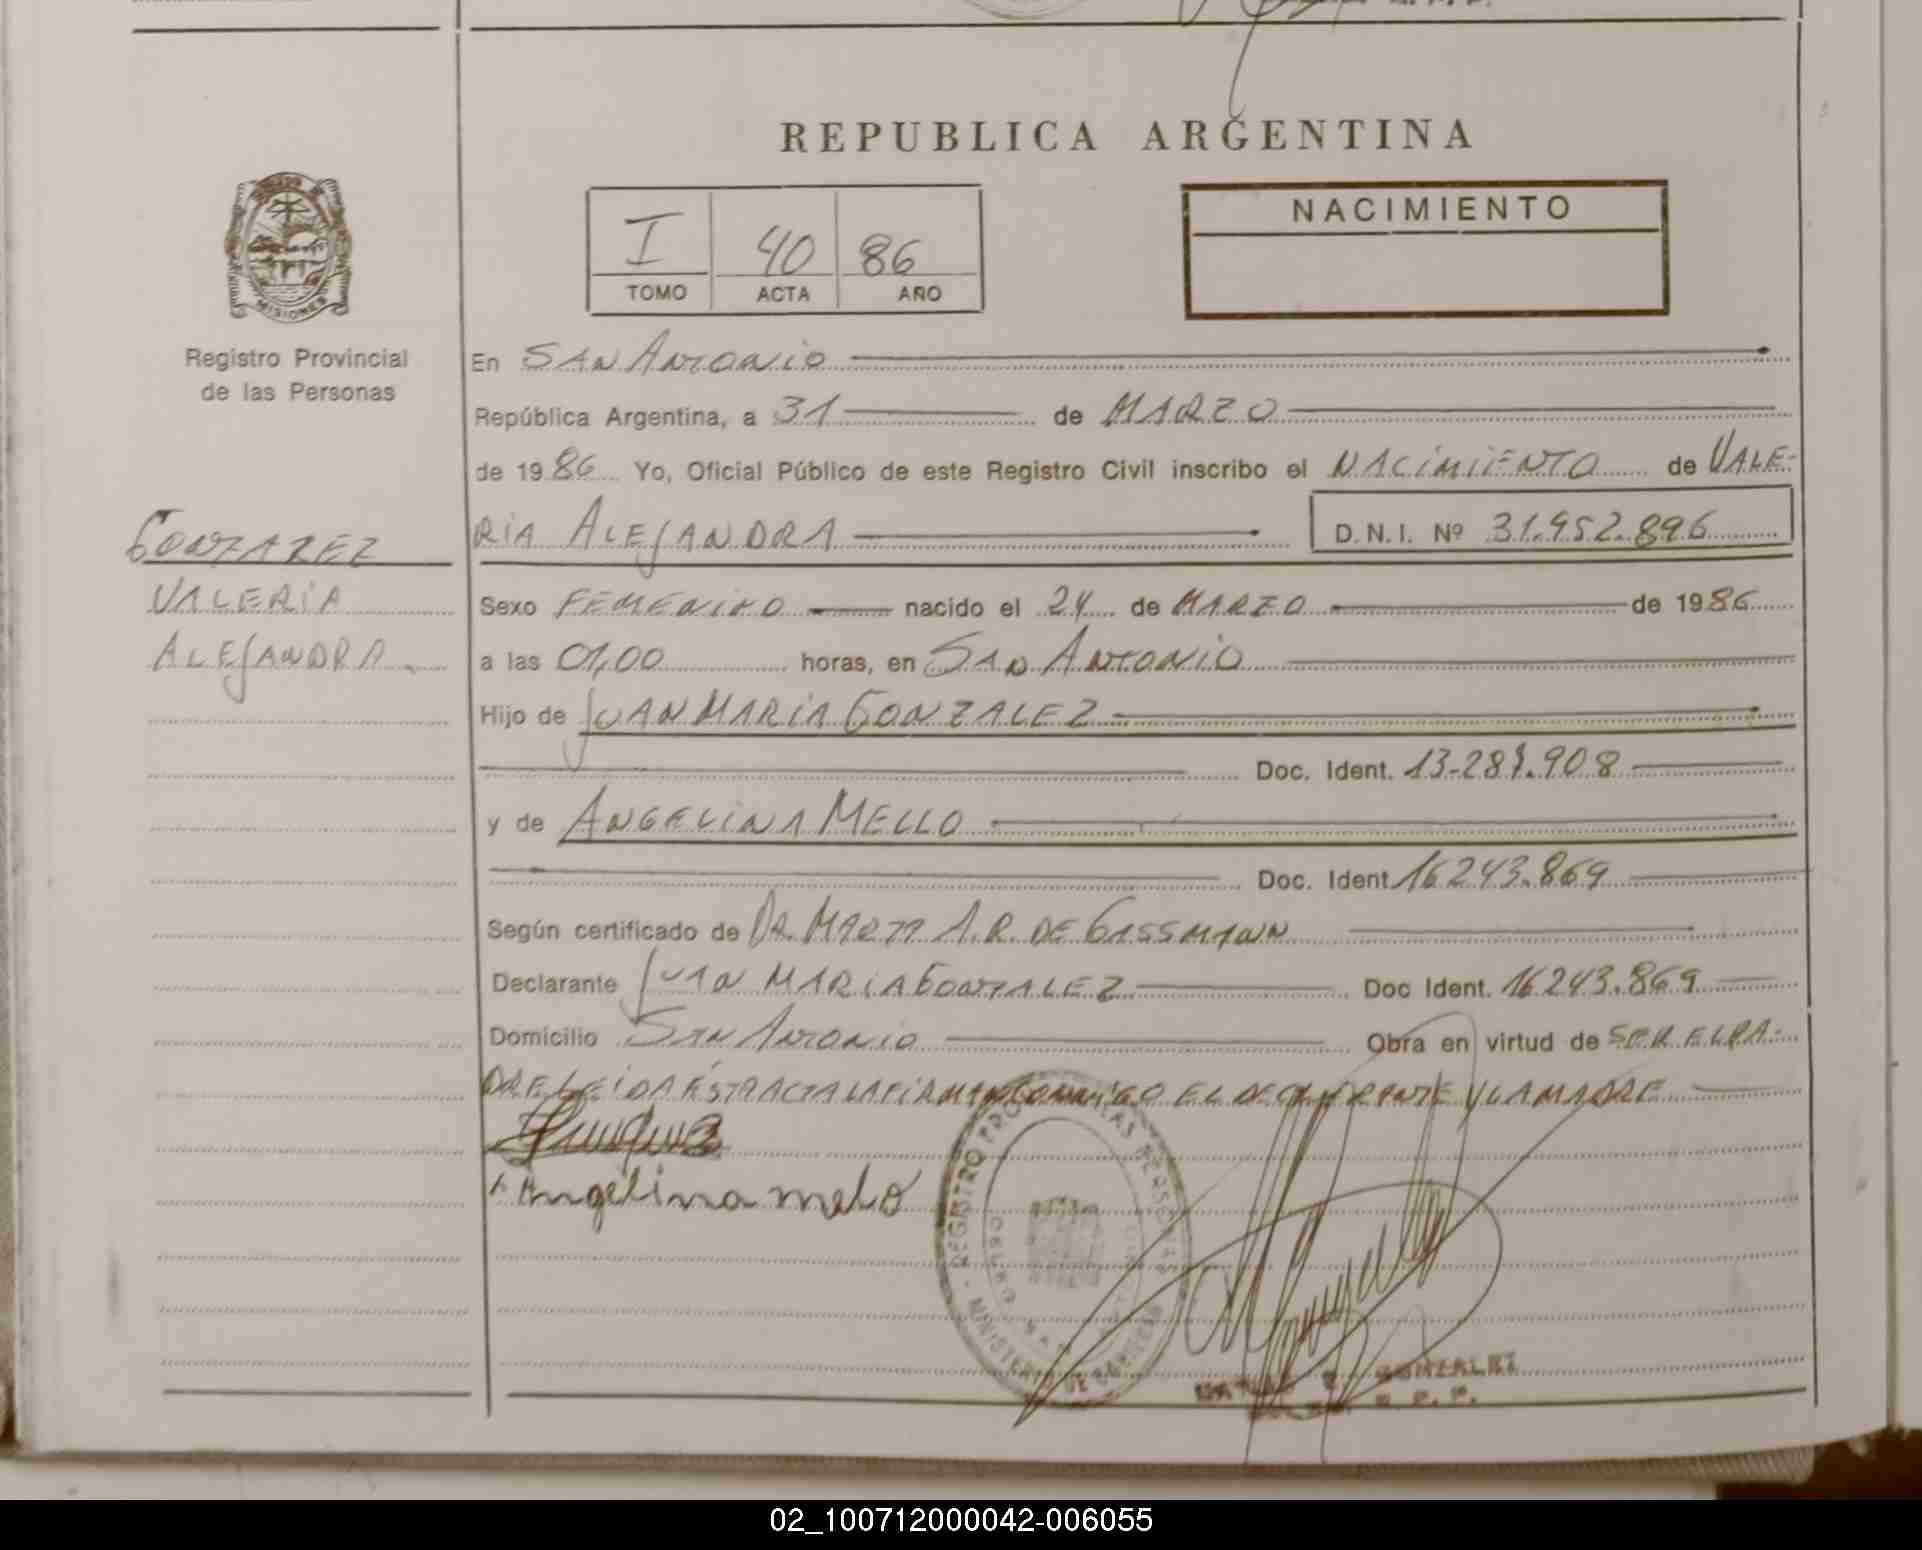 REPUBLICA ARGENTINA
I 40 86
TOMO ACTA AÑO
NACIMIENTO
MISIONES
Registro Provincial
de las Personas
GONZALEZ
VALERIA
ALEJANDRA
En SAN ANTONIO
República Argentina, a 31 de MARZO
de 1986 Yo, Oficial Público de este Registro Civil inscribo el NACIMIENTO de VALE-
RIA ALEJANDRA D.N.I. Nº 31.952.896
Sexo FEMENINO nacido el 24 de MARZO de 1986
a las 01,00 horas, en SAN ANTONIO
Hijo de JUAN MARIA GONZALEZ
Doc. Ident. 13-281.908
y de ANGELINA MELLO
Doc. Ident 16243.869
Según certificado de DR. MARTA A.R. DE GASSMANN
Declarante JUAN MARIA GONZALEZ Doc Ident. 16243.869
Domicilio SAN ANTONIO Obra en virtud de SER EL PA-
DRE LEIDA ESTA ACTA LA FIRMAN CONMIGO EL DECLARANTE Y LA MADRE
Angelina melo
REGISTRO PERSONAS
MINISTERIO DE GOBIERNO
GONZALEZ
02_100712000042-006055